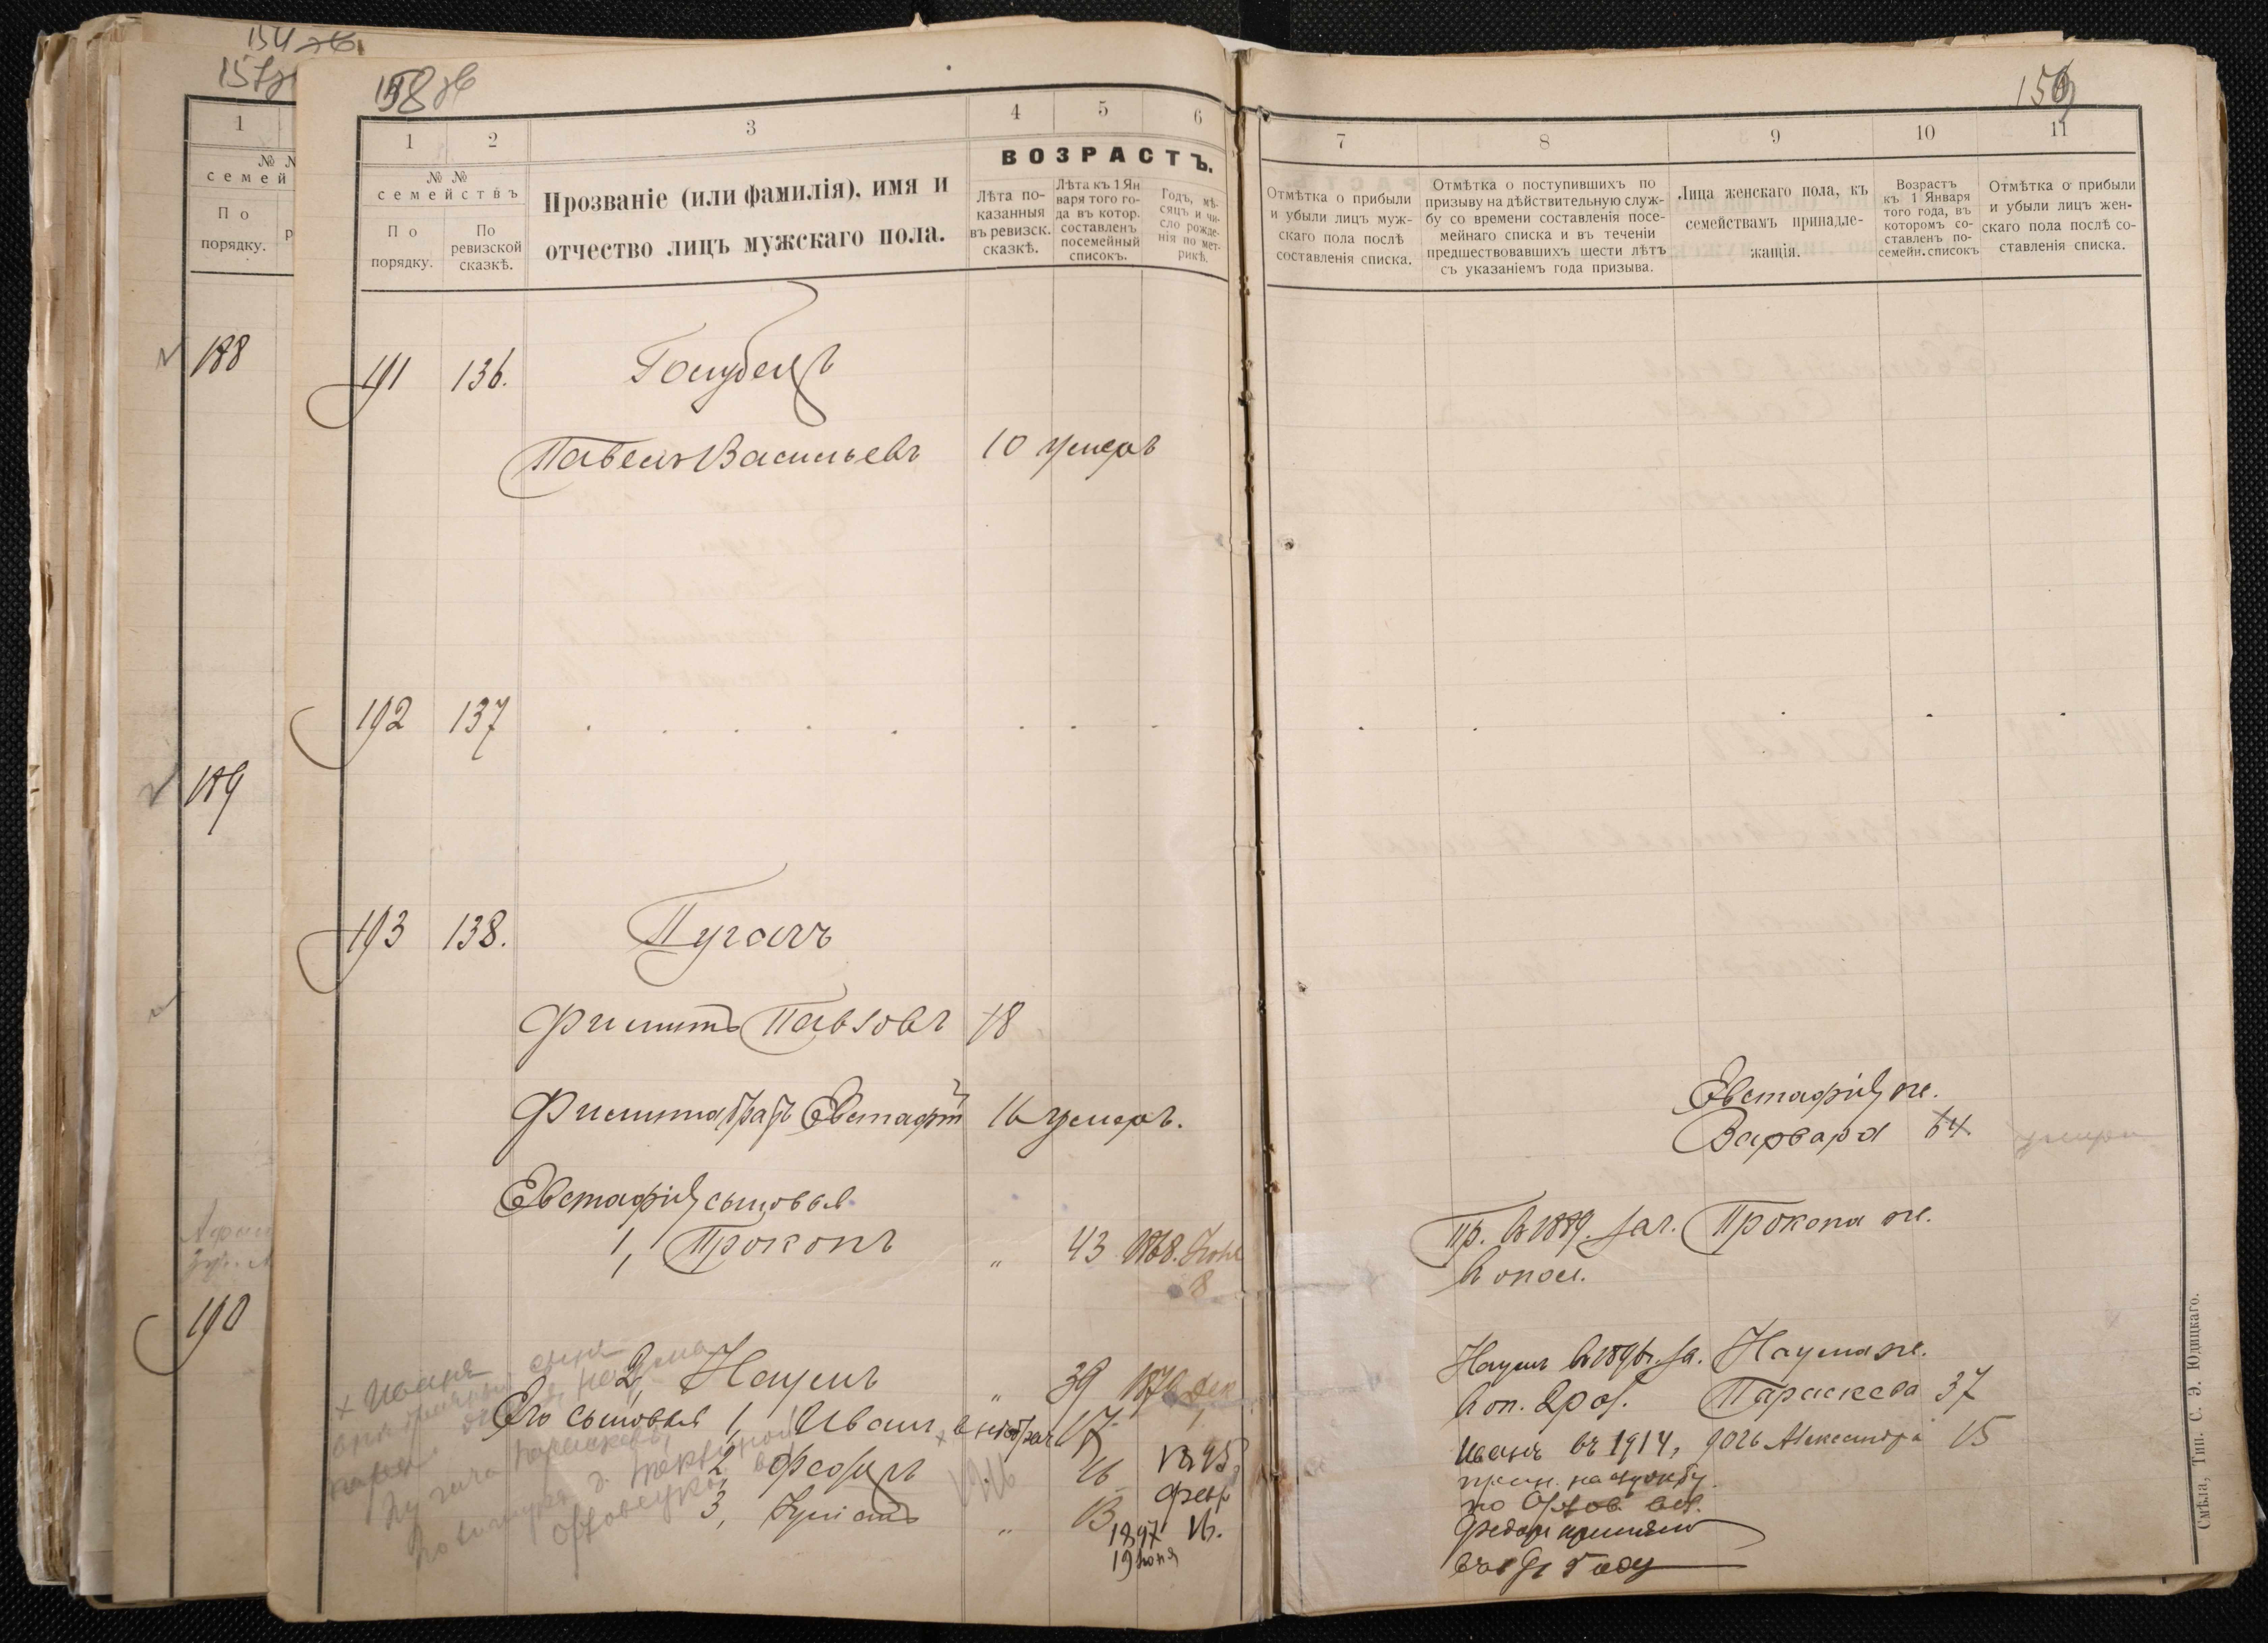 154
157
1
№ №
семей
По
порядку.
188
189
190
158
1
2
3
4
5
6
№ №
семействъ
По
порядку.
По
ревизской
сказкѣ.
Прозваніе (или фамилія), имя и
отчество лицъ мужскаго пола.
ВОЗРАСТЪ.
Лѣта по-
казанныя
въ ревизск.
сказкѣ.
Лѣта къ 1 Ян
варя того го-
да въ котор.
составленъ
посемейный
списокъ.
Годъ, мѣ-
сяцъ и чи-
сло рожде-
нія по мет-
рикѣ.
191 136. Голубецъ
Павелъ Васильевъ 10 умеръ
192 137
193 138. Пугачъ
Филиппъ Павловъ 18
Филиппа братъ Евстафій 16 умеръ.
Евстафія сыновья
1, Прокопъ " 43 1868. Іюня
8
2, Наумъ " 39
Его сыновья 1, Иванъ 17
2, Федоръ 16 1895
февр
3, " 13 16.
1897
19 Іюня
159
7
8
9
10
11
Отмѣтка о прибыли
и убыли лицъ муж-
скаго пола послѣ
составленія списка.
Отмѣтка о поступившихъ по
призыву на дѣйствительную служ-
бу со времени составленія посе-
мейнаго списка и въ теченіи
предшествовавшихъ шести лѣтъ
съ указаніемъ года призыва.
Лица женскаго пола, къ
семействамъ принадле-
жащія.
Возрастъ
къ 1 Января
того года, въ
которомъ со-
ставленъ по-
семейн. списокъ
Отмѣтка о прибыли
и убыли лицъ жен-
скаго пола послѣ со-
ставленія списка.
Евстафія ж.
Варвара 64. умерла
Пр. въ 1889. зач. Прокопа ж.
въ опол.
Наумъ въ 189 г. за. Наума ж.
въ оп. Параскева 37
Иванъ въ 1914, дочь Александра 15
прин. на службу
по
Федоръ принятъ
году
Смѣла, Тип. С. Э. Юдицкаго.